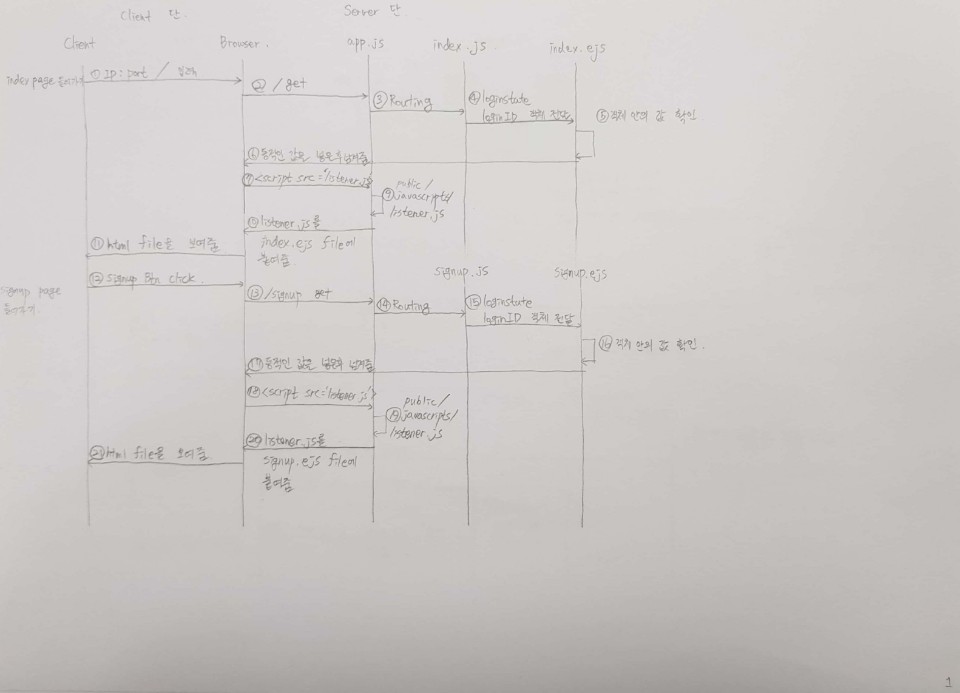 Client 단
Server 단
Client
Browser.
app.js
index.js
index.ejs
index page 들어가기
① IP:port / 입력
② /get
③ Routing
④ loginstate
loginID 객체 전달
⑤ 객체 안의 값 확인
⑥ 동적인 값은 넣은후 넘겨줌
⑦ <script src='listener.js'
⑨ public/
javascripts/
listener.js
⑩ listener.js를
index.ejs file에
붙여줌
⑪ html file을 보여줌
signup.js
signup.ejs
signup page
들어가기
⑫ signup Btn click.
⑬ /signup get
⑭ Routing
⑮ loginstate
loginID 객체 전달
⑯ 객체 안의 값 확인.
⑰ 동적인 값은 넣은후 넘겨줌
⑱ <script src='listener.js'>
⑲ public/
javascripts/
listener.js
⑳ listener.js를
signup.ejs file에
붙여줌
㉑ html file을 보여줌
1